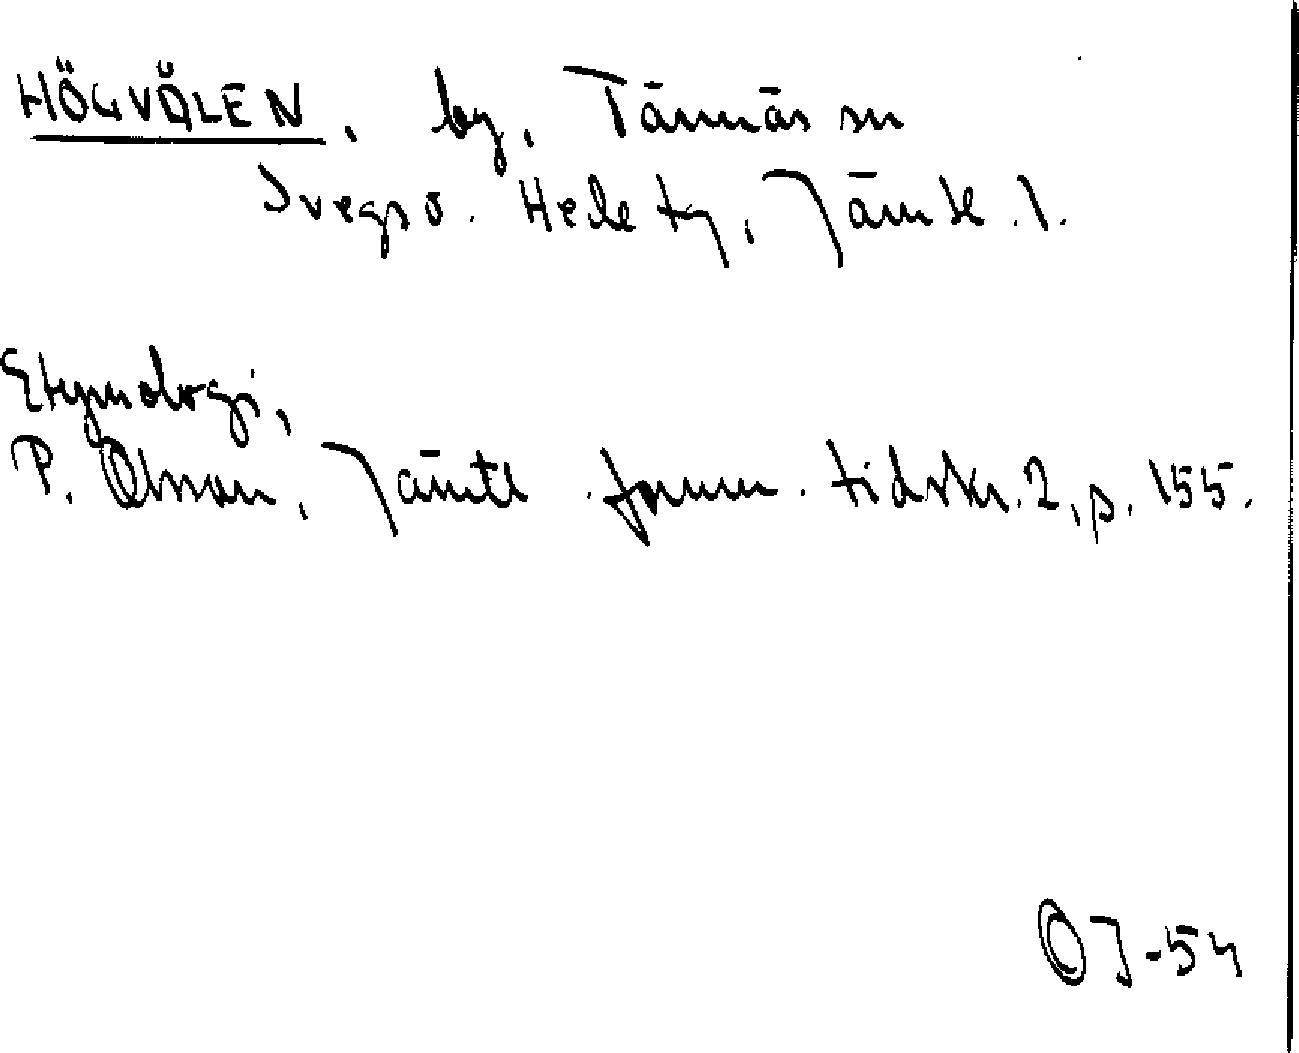 HÖGVÅLEN, by, Tännäs sn
Svegs o. Hede tg, Jämtl. l.
Etymologi,
P. Olsson, Jämtl. fornm. tidskr. 2, p. 155.
OJ-54